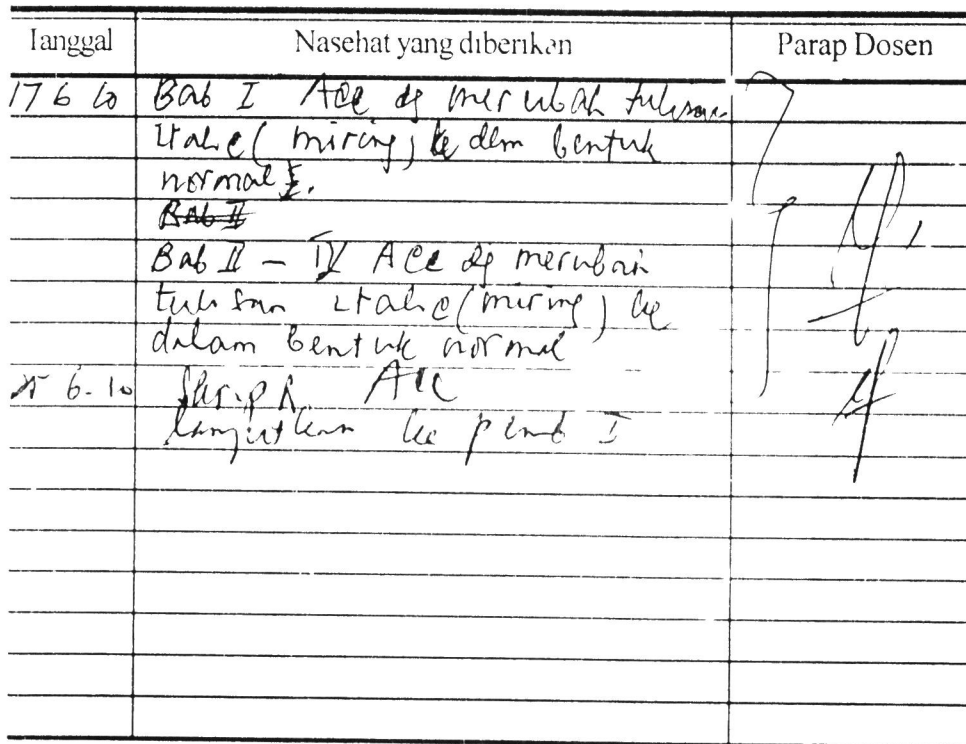 Tanggal Nasehat yang diberikan Parap Dosen
17 6 10 Bab I Acc dg merubah tulisan
Italic (miring) ke dlm bentuk
normal
Bab II
Bab II - IV Acc dg merubah
tulisan italic (miring) ke
dalam bentuk normal
6-10 Skripsi Acc
lanjutkan ke pemb I